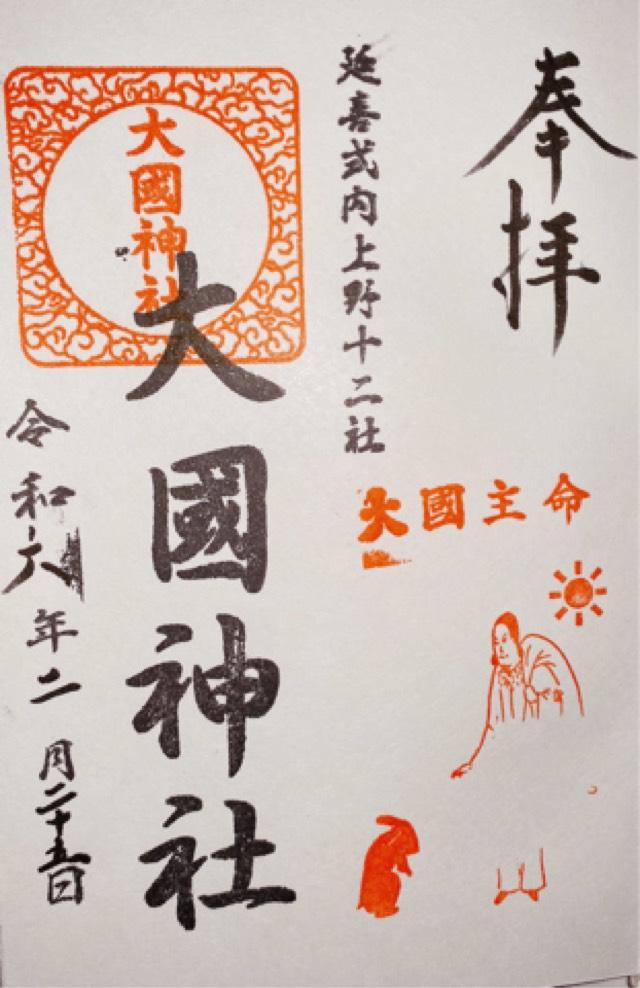 奉拝
延喜式内上野十二社
大國主命
大國神社
大國神社
令和六年二月二十五日